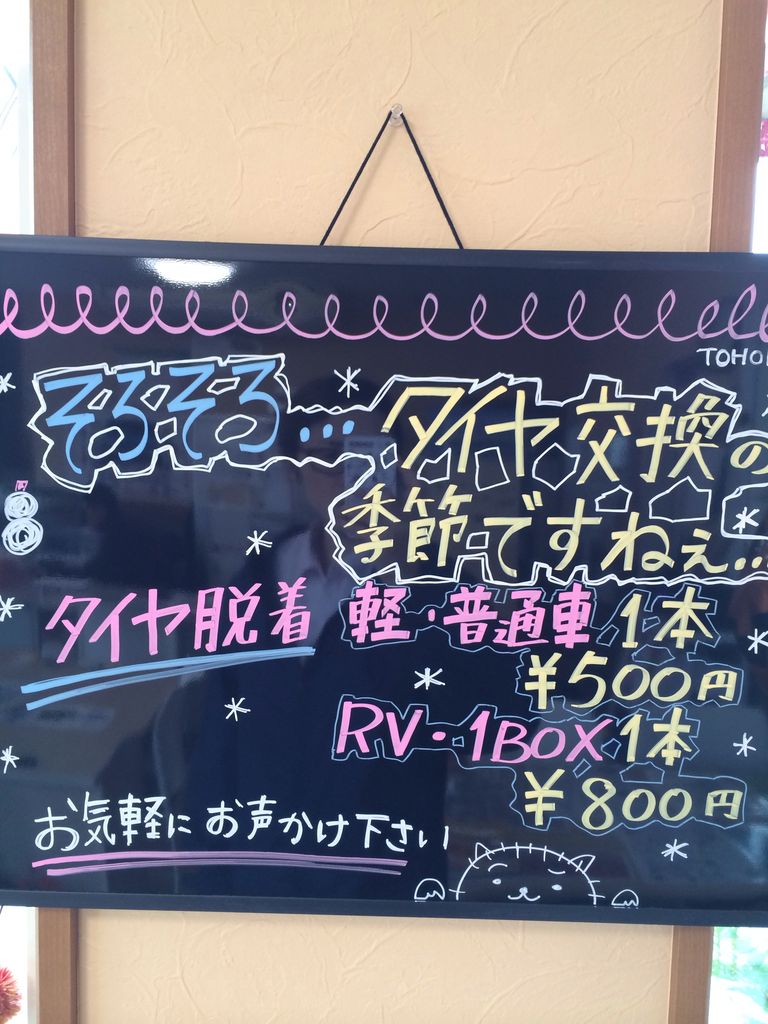 そろそろ…タイヤ交換の
季節ですねぇ…
タイヤ脱着 軽・普通車 1本
¥500円
RV・1BOX 1本
¥800円
お気軽にお声かけ下さい